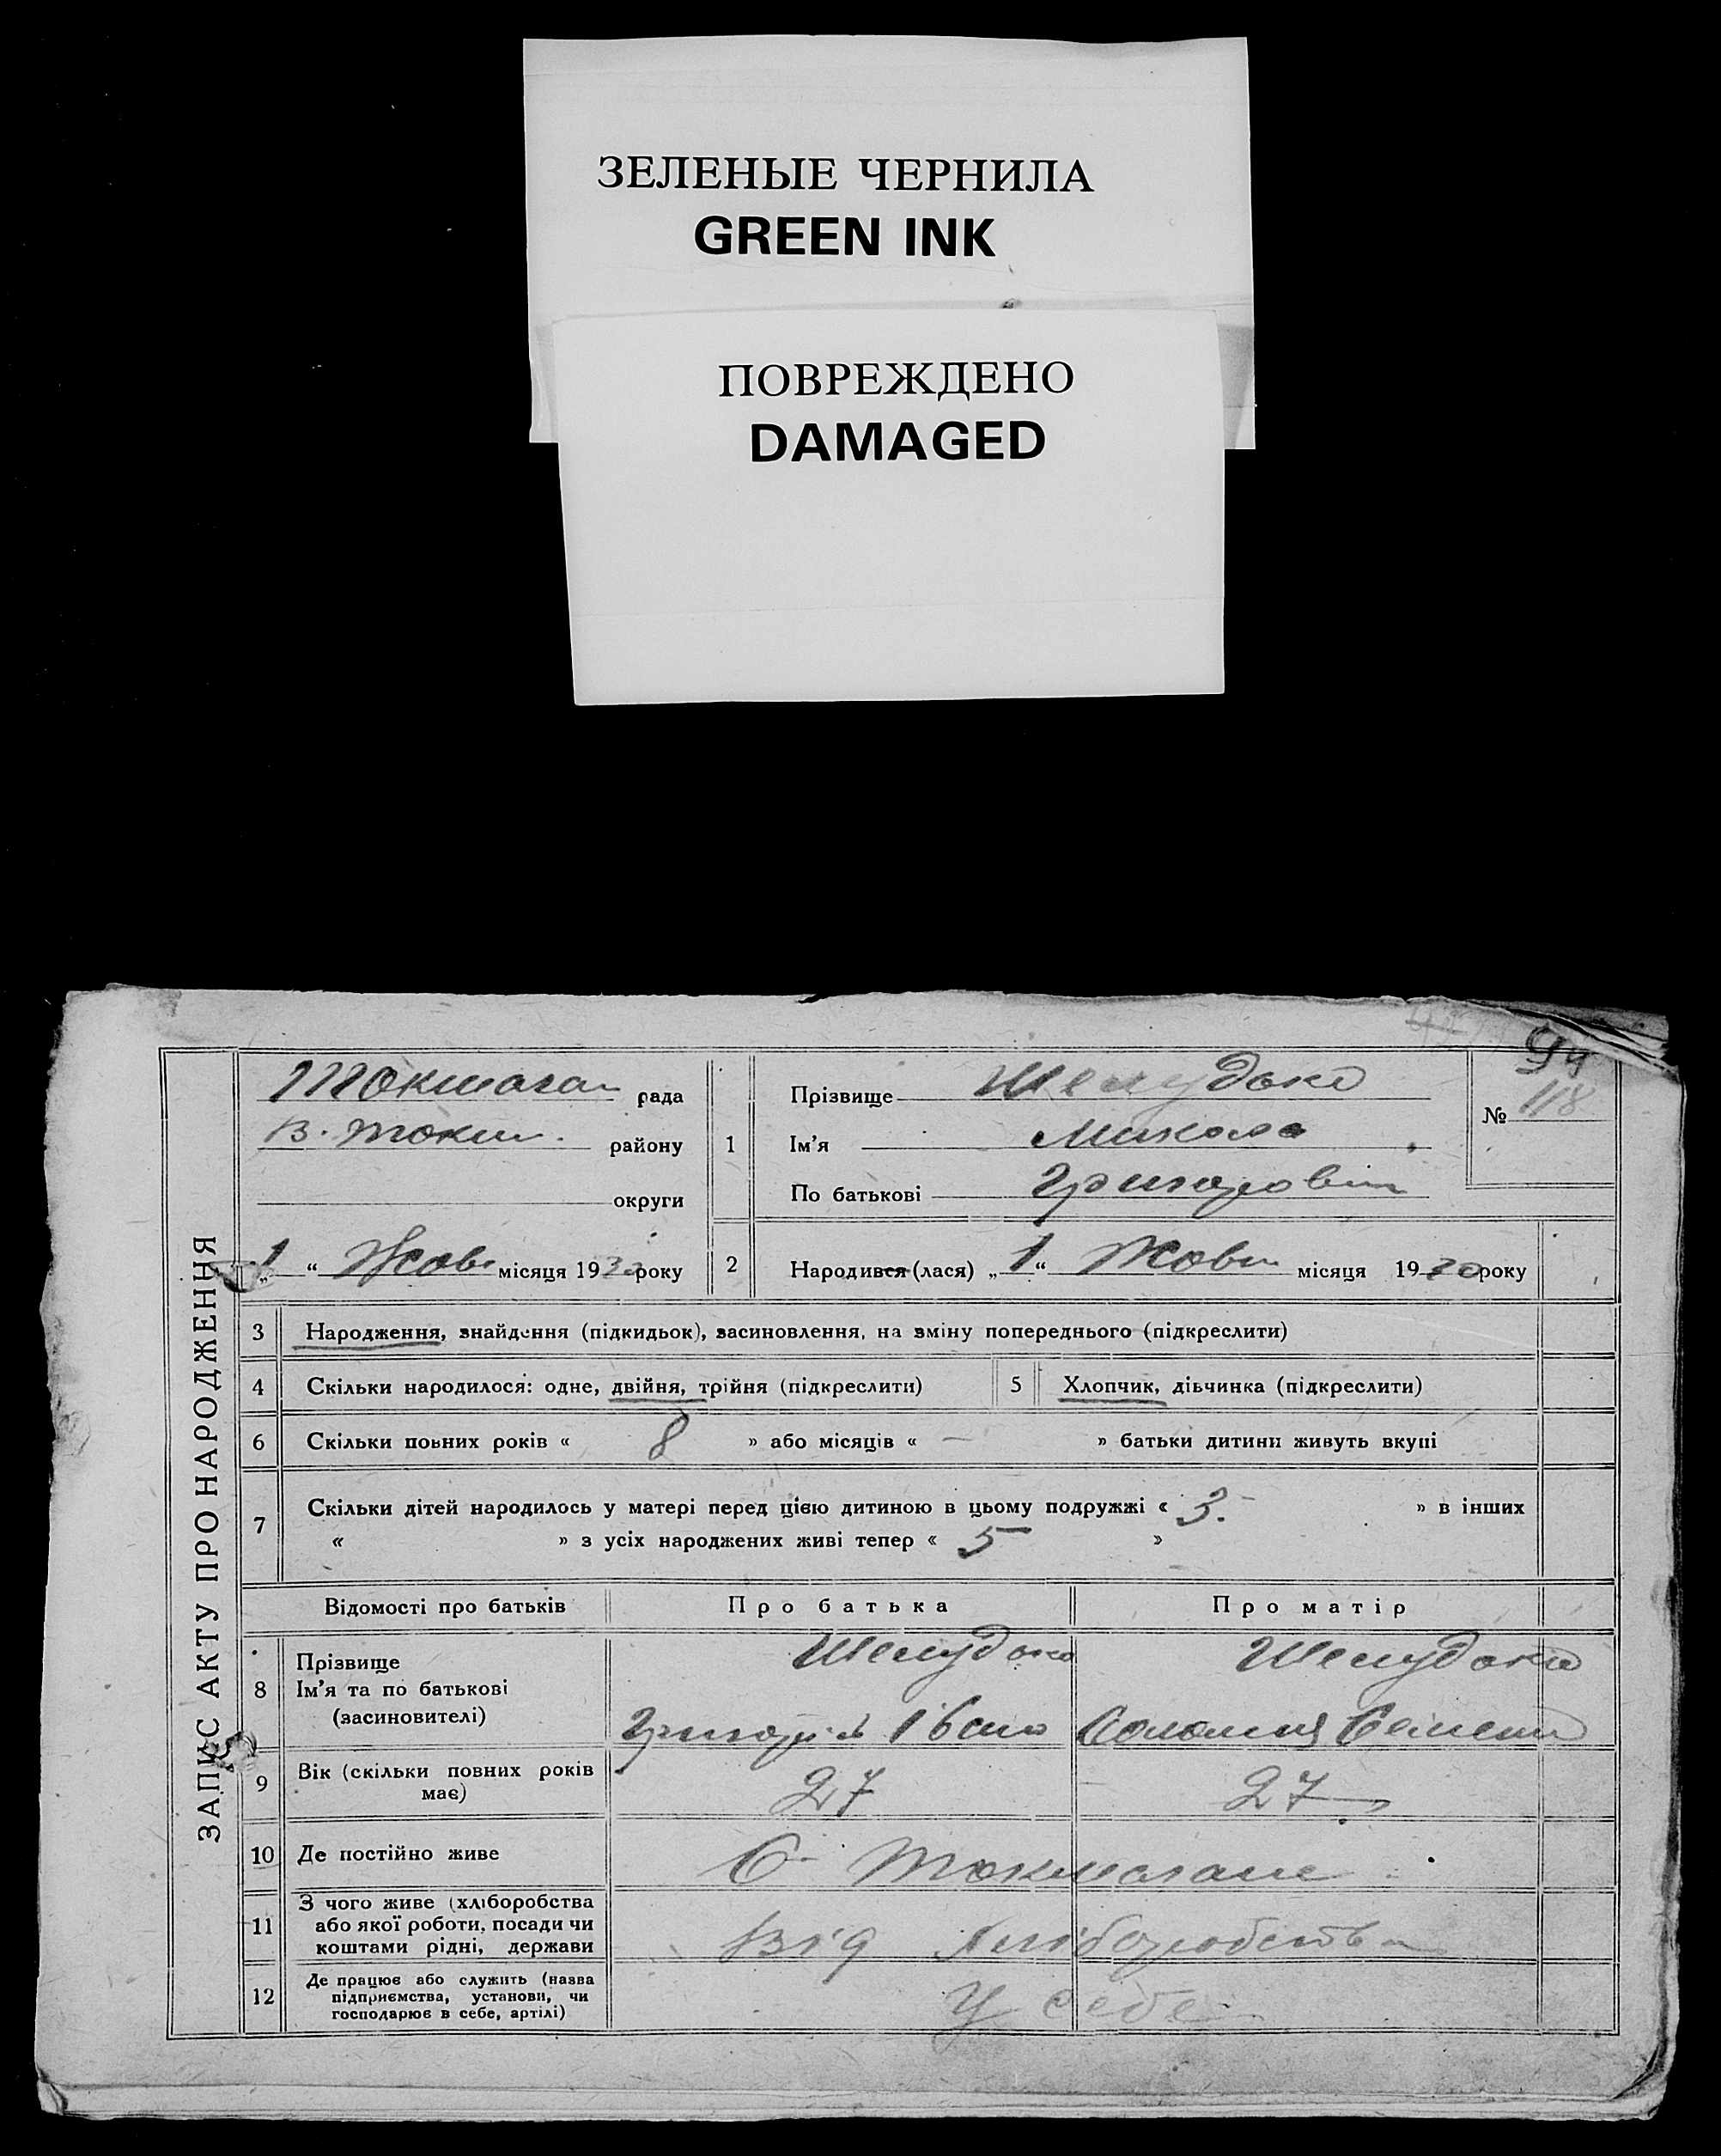 ЗЕЛЕНЫЕ ЧЕРНИЛА
GREEN INK
ПОВРЕЖДЕНО
DAMAGED
94
ЗАПИС АКТУ ПРО НАРОДЖЕННЯ
Токмачан рада
В. Токм. району
округи
„1“ Жовт місяця 1930 року
1
Прізвище Шелудько
Ім'я Микола
По батькові Григорович
№ 118
2 Народився (лася) „1“ Жовт місяця 1930 року
3 Народження, знайдення (підкидьок), засиновлення, на зміну попереднього (підкреслити)
4 Скільки народилося: одне, двійня, трійня (підкреслити) 5 Хлопчик, дівчинка (підкреслити)
6 Скільки повних років « 8 » або місяців « — » батьки дитини живуть вкупі
7 Скільки дітей народилось у матері перед цією дитиною в цьому подружжі « 3. » в інших
« » з усіх народжених живі тепер « 5 »
Відомості про батьків Про батька Про матір
8 Прізвище Шелудько Шелудько
Ім'я та по батькові
(засиновителі) Григорій Іван Соломія Семен
9 Вік (скільки повних років має) 27 27
10 Де постійно живе С.
11 З чого живе (хліборобства
або якої роботи, посади чи
коштами рідні, держави Від Хліборобств
12 Де працює або служить (назва
підприємства, установи, чи
господарює в себе, артілі) У себе